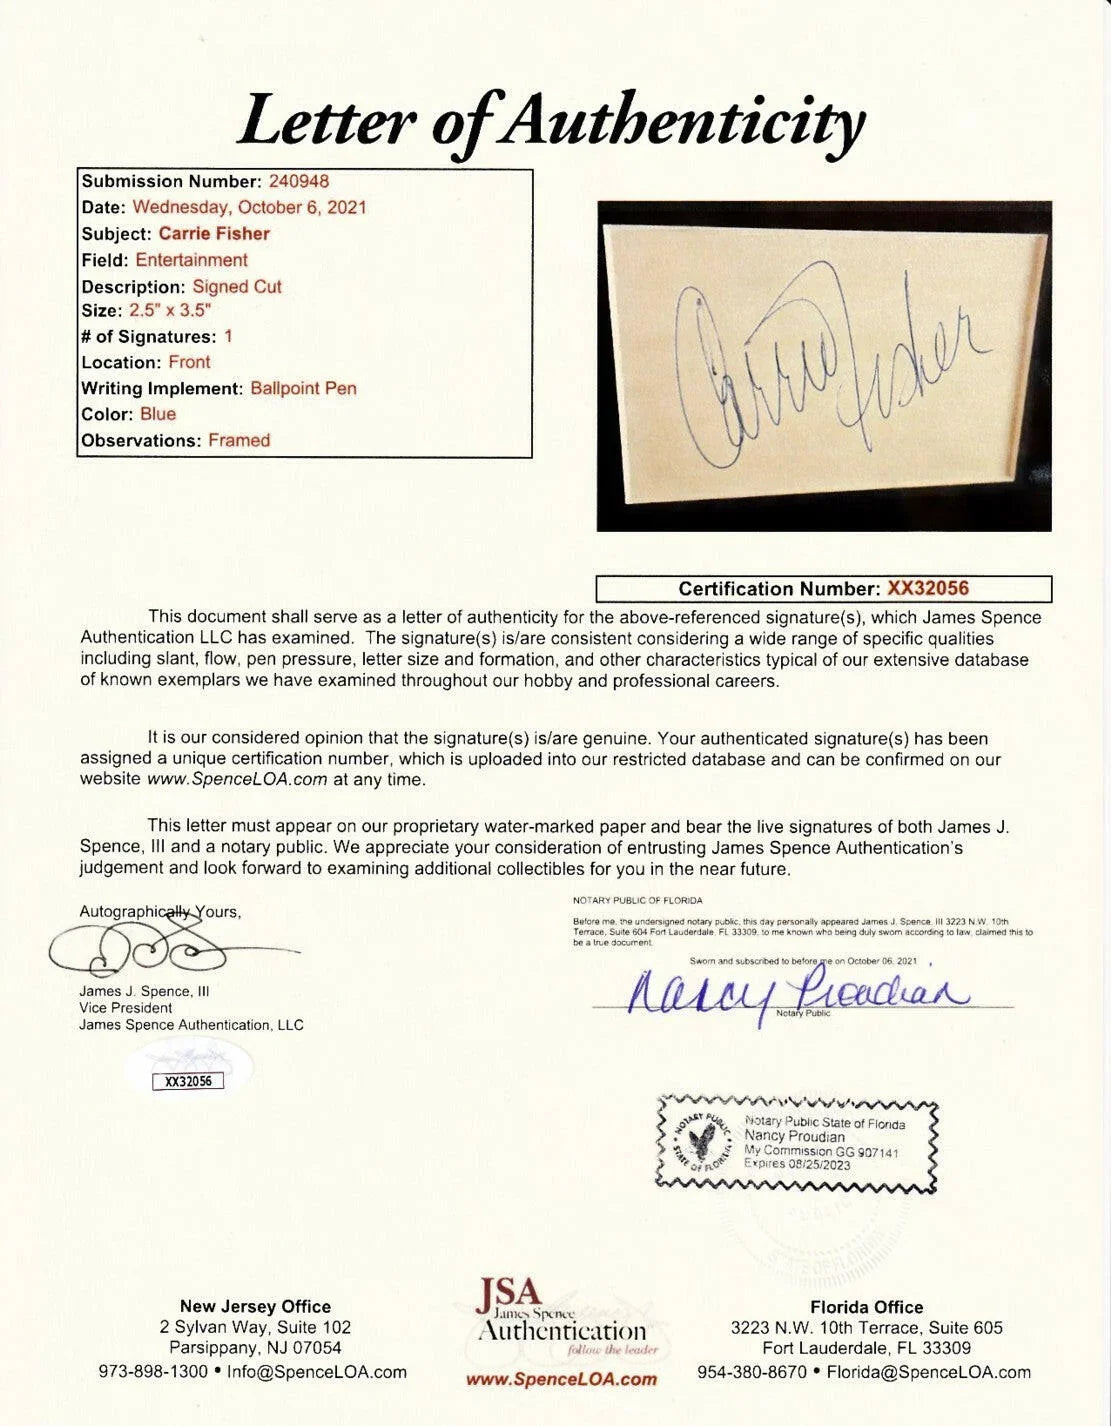 Letter of Authenticity
Submission Number: 240948
Date: Wednesday, October 6, 2021
Subject: Carrie Fisher
Field: Entertainment
Description: Signed Cut
Size: 2.5" x 3.5"
# of Signatures: 1
Location: Front
Writing Implement: Ballpoint Pen
Color: Blue
Observations: Framed
Carrie Fisher
Certification Number: XX32056
This document shall serve as a letter of authenticity for the above-referenced signature(s), which James Spence
Authentication LLC has examined. The signature(s) is/are consistent considering a wide range of specific qualities
including slant, flow, pen pressure, letter size and formation, and other characteristics typical of our extensive database
of known exemplars we have examined throughout our hobby and professional careers.
It is our considered opinion that the signature(s) is/are genuine. Your authenticated signature(s) has been
assigned a unique certification number, which is uploaded into our restricted database and can be confirmed on our
website www.SpenceLOA.com at any time.
This letter must appear on our proprietary water-marked paper and bear the live signatures of both James J.
Spence, III and a notary public. We appreciate your consideration of entrusting James Spence Authentication's
judgement and look forward to examining additional collectibles for you in the near future.
Autographically Yours,
James J. Spence, III
Vice President
James Spence Authentication, LLC
XX32056
NOTARY PUBLIC OF FLORIDA
Before me, the undersigned notary public, this day personally appeared James J. Spence, III 3223 N.W. 10th
Terrace, Suite 604 Fort Lauderdale, FL 33309, to me known who being duly sworn according to law, claimed this to
be a true document.
Sworn and subscribed to before me on October 06, 2021
Nancy Proudian
Notary Public
NOTARY PUBLIC
STATE OF FLORIDA
Notary Public State of Florida
Nancy Proudian
My Commission GG 907141
Expires 08/25/2023
New Jersey Office
2 Sylvan Way, Suite 102
Parsippany, NJ 07054
973-898-1300 • Info@SpenceLOA.com
JSA
James Spence
Authentication
follow the leader
www.SpenceLOA.com
Florida Office
3223 N.W. 10th Terrace, Suite 605
Fort Lauderdale, FL 33309
954-380-8670 • Florida@SpenceLOA.com